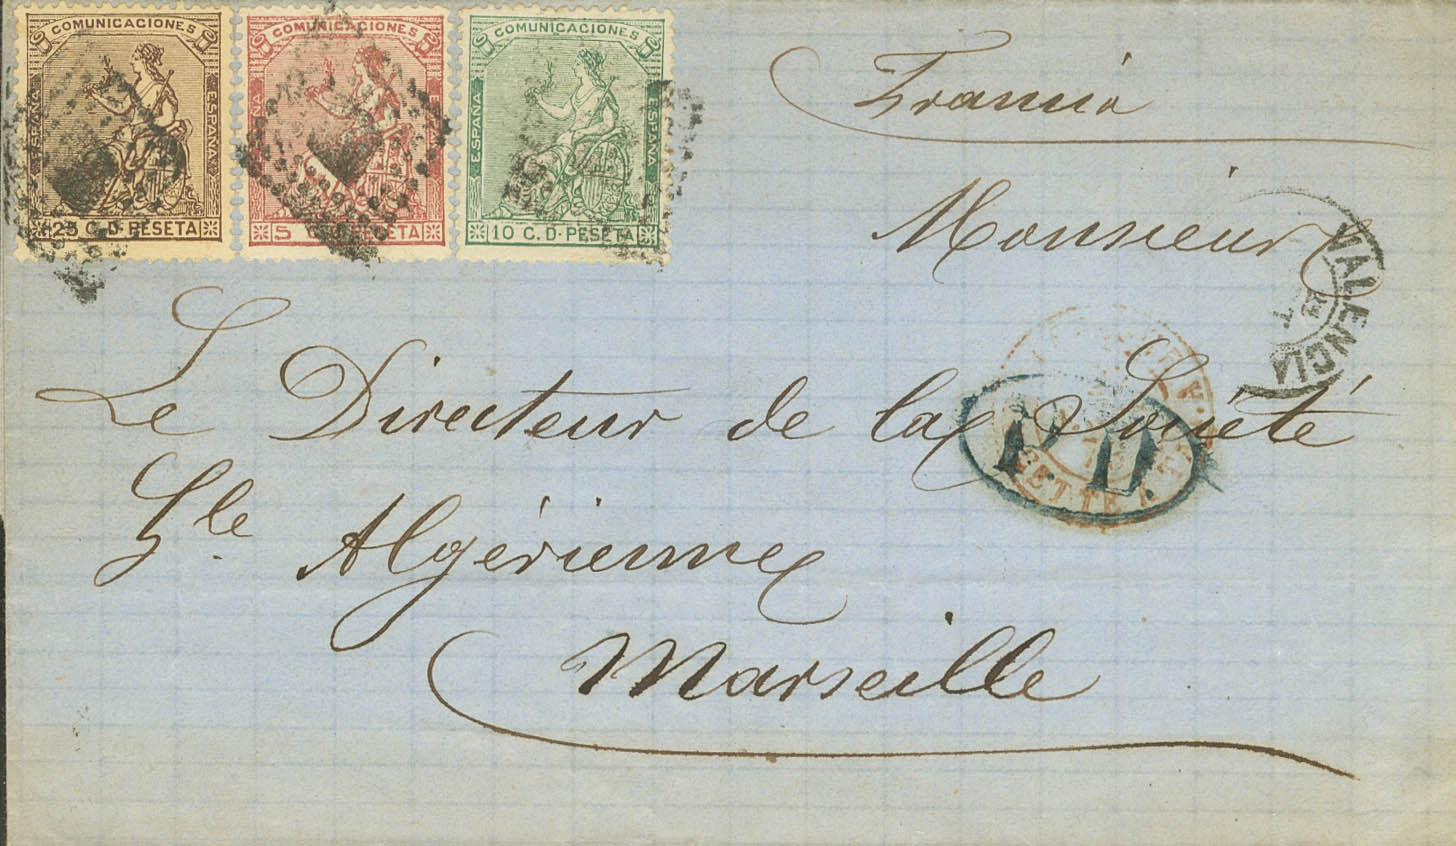 COMUNICACIONES
ESPAÑA ESPAÑA
25 C. D. PESETA
COMUNICACIONES
5 PESETA
COMUNICACIONES
ESPAÑA ESPAÑA
10 C. D. PESETA
Francia
Monsieur
VALENCIA
Le Directeur de la Société
P. D.
CETTE A T
Gle Algérienne
Marseille